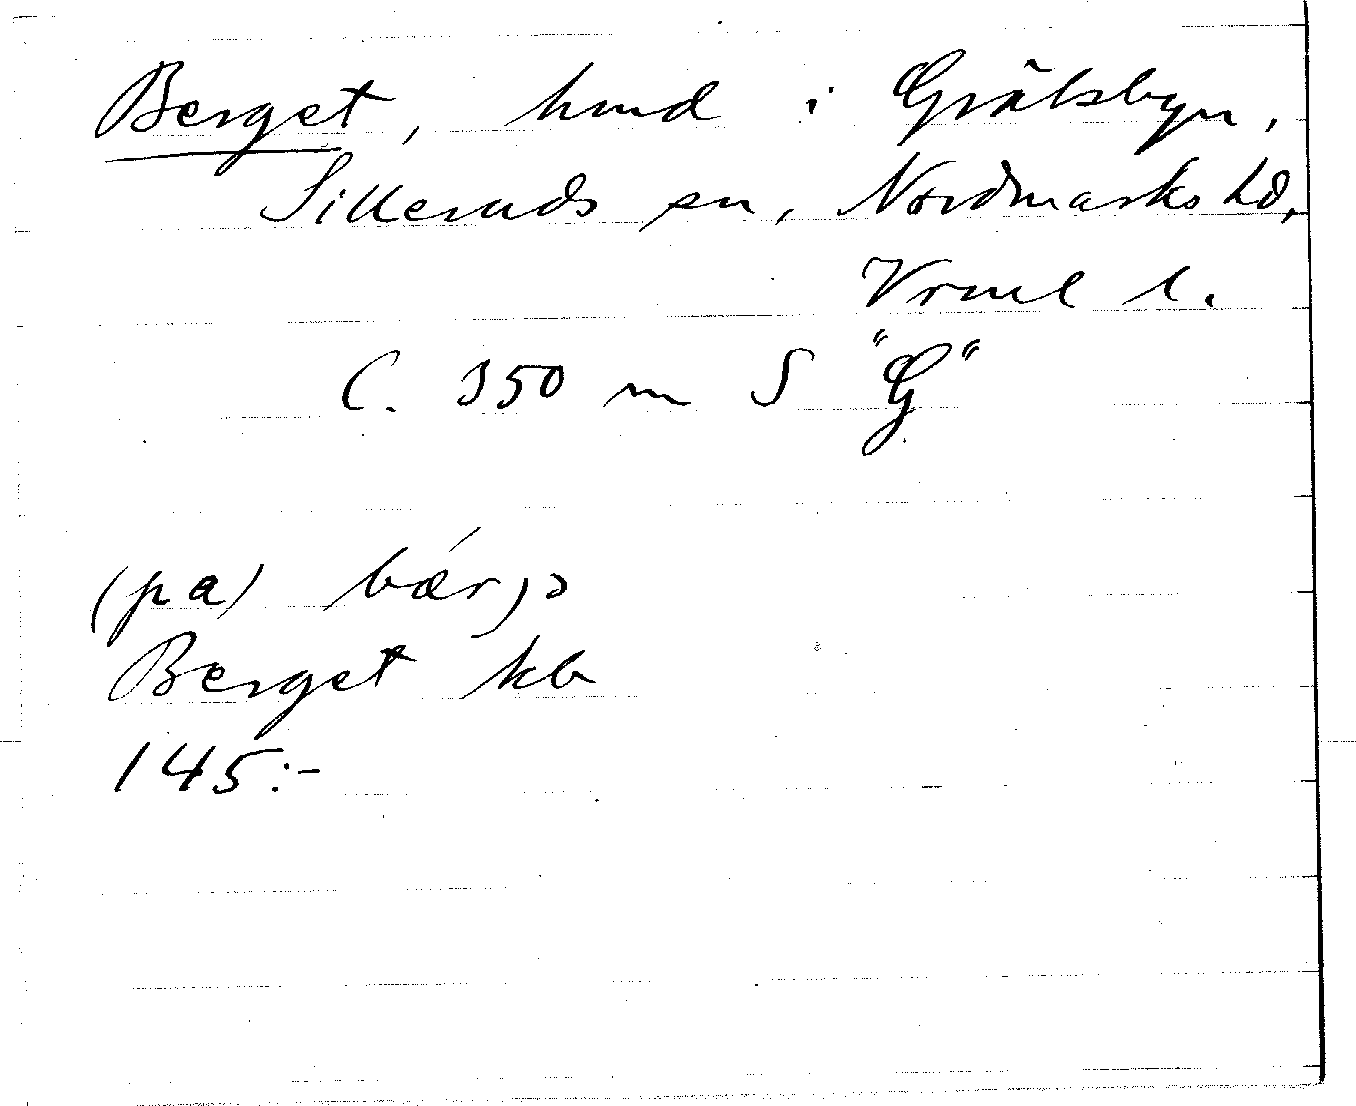 Berget, hmd i Gräsbyn,
Silleruds sn, Nordmarks hd,
Vrml l.
C. 350 m S "G"
(pa) bǽrjə
Berget kb
145:-